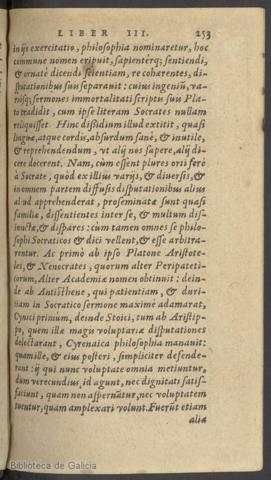 LIBER III. 253
in ijs exercitatio, philosophia nominaretur, hoc
commune nomen eripuit, sapienterq; sentiendi,
& ornatè dicendi scientiam, re cohærentes, di-
sputationibus suis separauit: cuius ingeniũ, va-
riosq; sermones immortalitati scriptis suis Pla-
to tradidit, cum ipse literam Socrates nullam
reliquisset. Hinc dissidium illud extitit, quasi
linguæ, atque cordis, absurdum sanè, & inutile,
& reprehendendum, vt alij nos sapere, alij di-
cere docerent. Nam, cùm essent plures orti ferè
à Socrate, quòd ex illius varijs, & diuersis, &
in omnem partem diffusis disputationibus alius
aliud apprehenderat, proseminatæ sunt quasi
familiæ, dissentientes inter se, & multum dis-
iunctæ, & dispares: cùm tamen omnes se philo-
sophi Socraticos & dici vellent, & esse arbitra-
rentur. Ac primò ab ipso Platone Aristote-
les, & Xenocrates, quorum alter Peripateti-
corum, Alter Academiæ nomen obtinuit: dein-
de ab Antisthene, qui patientiam, & duri-
tiam in Socratico sermone maximè adamarat,
Cynici primùm, deinde Stoici, tum ab Aristip-
po, quem illæ magis voluptariæ disputationes
delectarant, Cyrenaica philosophia manauit:
quam ille, & eius posteri, simpliciter defende-
rant: ij qui nunc voluptate omnia metiuntur,
dum verecundius id agunt, nec dignitati satis-
faciunt, quam non aspernãtur, nec voluptatem
tuentur, quam amplexari volunt. Fuerũt etiam
alia
Biblioteca de Galicia